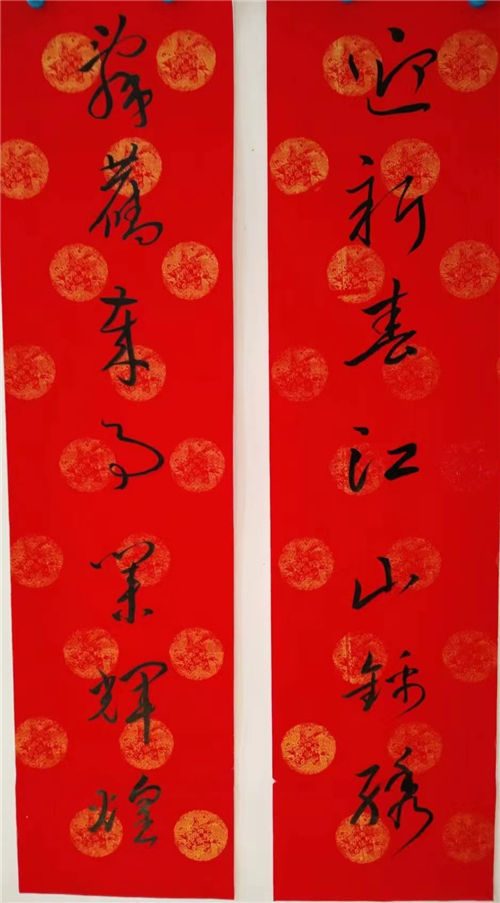 迎新春江山锦绣
辞舊岁事业辉煌